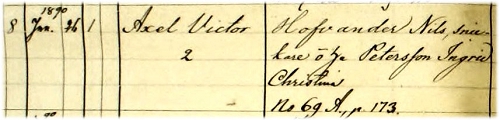 1890
8 Jan. 26 1 Axel Victor Hofvander Nils, snic-
2 kare o. h. Petersson Ingrid
Christina
No 69 A, p. 173.